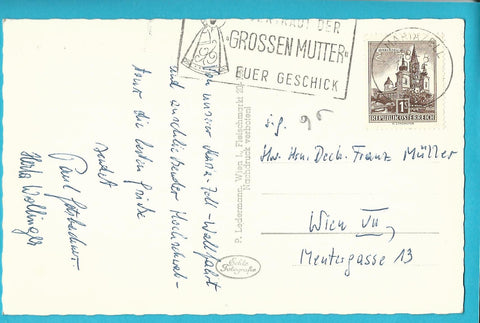 VERTRAUT DER
"GROSSEN MUTTER"
EUER GESCHICK
MARIAZELL
1S
REPUBLIK ÖSTERREICH
Von unserer Maria-Zell-Wallfahrt
und anschließender Hochschwab-
tour die besten Grüße
sendet
Paul
P. Ledermann, Wien I., Fleischmarkt
Nachdruck verboten!
Echte
Fotografie
Hw. Hrn. Dech. Franz Müller
Wien VII,
Mentergasse 13